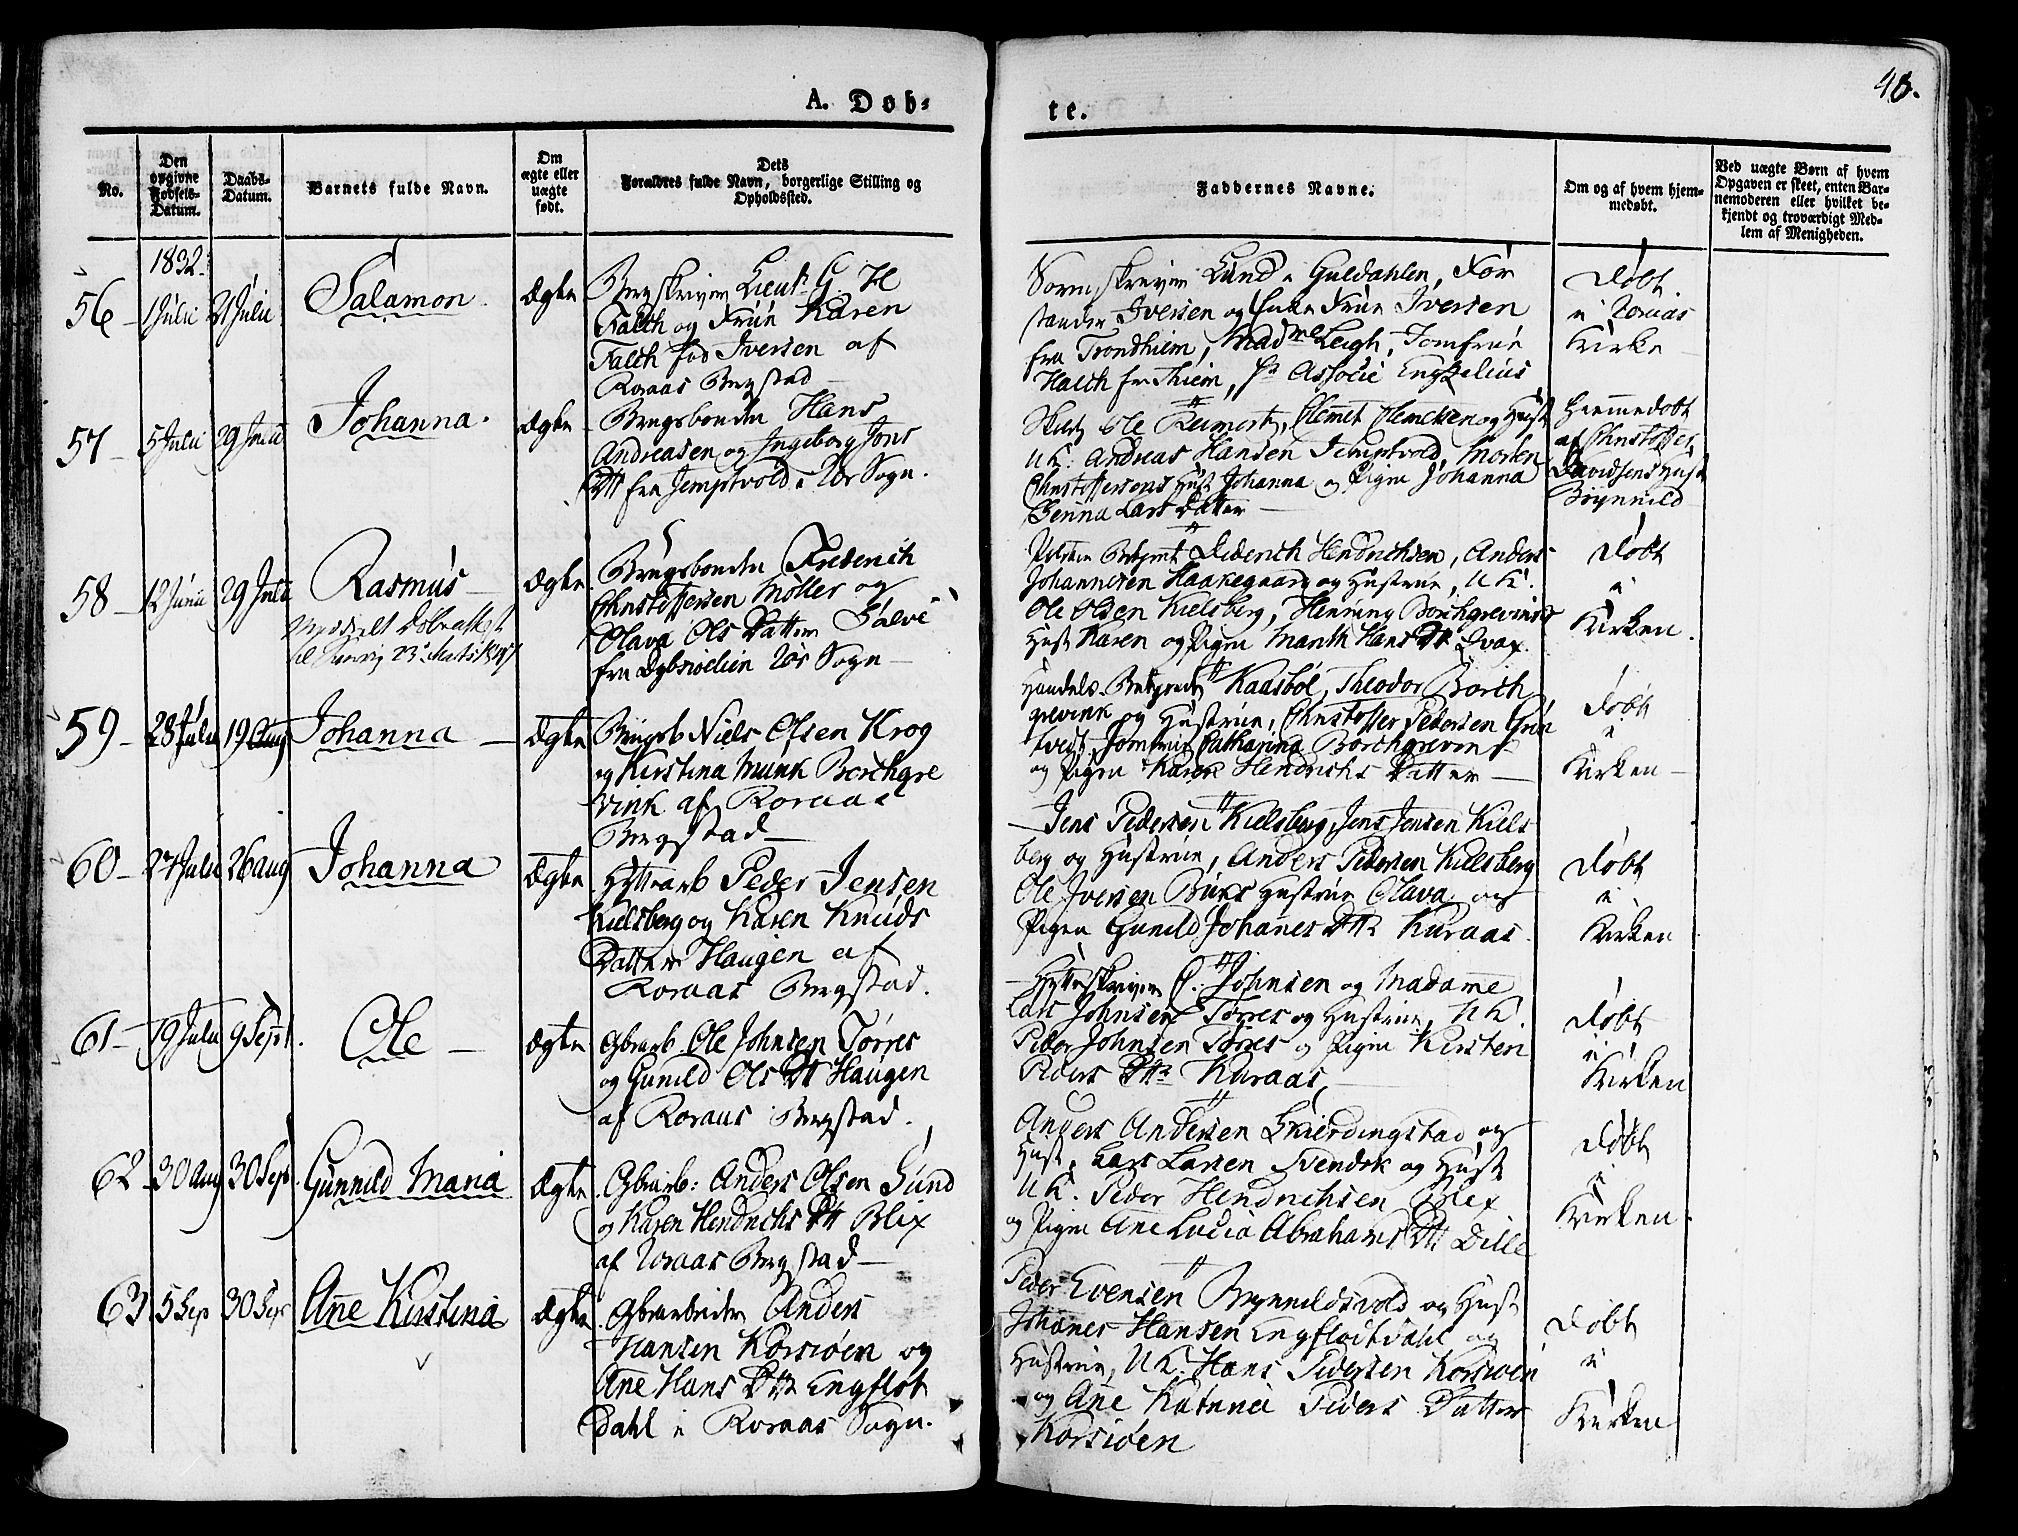 A. Døb-
te.
40.
No.
Den
opgivne
Fødsels-
Datum.
Daabs-
Datum.
Barnets fulde Navn.
Om
ægte eller
uægte
født.
Dets
Forældres fulde Navn, borgerlige Stilling og
Opholdssted.
Faddernes Navne.
Om og af hvem hjem-
medøbt.
Ved uægte Børn af hvem
Opgaven er skeet, enten Bar-
nemoderen eller hvilket be-
kjendt og troværdigt Med-
lem af Menigheden.
1832.
56 1 Julii 21 Julii Salamon. Ægte
Bergskriver Lieut. G. H
Falch og Frue Karen
Falch fød Iversen af
Roraas Bergstad
Sorenskriver Lund i Guldahlen, For
stander Iversen og Frue Iversen
fra Trondhiem, Madme Leigh, Jomfrue
Halch fr Thiem, Hr Engzelius
Døbt
i Roraas
Kirke
57 5 Julii 29 Julii Johanna. Ægte
Brugsbonden Hans
Andreasen og Ingeborg Jons
Dtr fra Jemptvold i Rør Sogn.
Ole Clemet Clemetsen og Hust
UK: Andreas Hansen Jemptvold, Morten
Christoffersens Hust Johanna og Pigen Johanna
Benna Lars Datter
Hiemmedøbt
af Christoffer
Davidsens Hust
Brynnild
58 12 Junii 29 Julii Rasmus Ægte
Meddelt Døbeattest
Brugsbonden Frederich
Christoffersen Møller og
Olava Ols Datter Galve
fra Sogn
Diderich Hendrichsen, Anders
Johannesen Haakegaard og Hustrue, UK.
Ole Olsen Kielsberg, Henning Borchgrevinks
Hust Karen og Pigen Marith Hans Dtr
Døbt
i
Kirken.
59 28 Julii 19 Aug Johanna Ægte
Brugsb Niels Olsen Krog
og Kirstina Munk Borchgre
vink af Roraas
Bergstad
Handels Kaasbøl, Theodor Borch
grevink og Hustrue, Christoffer Pedersen Grøn
tvedt, Jomfrue Catharina Borchgrevink
og Pigen Karen Hendrichs Datter
Døbt
i
Kirken
60 27 Julii 26 Aug Johanna Ægte
Hyttearb Peder Jensen
Kielsberg og Karen Knuds
Datter Haugen af
Roraas Bergstad.
Jens Pedersen Kielsberg, Jens Jensen Kiels
berg og Hustrue, Anders Pedersen Kielsberg
Ole Iversen Hustrue Olava og
Pigen Gunild Johanes Dtr Kuraas.
Døbt
i
Kirken
61 19 Julii 9 Sept. Ole Ægte
Gbrarb. Ole Johnsen Tørres
og Gunild Ols Dtr Haugen
af Roraas Bergstad.
Hytteskriver Johnsen og Madame
Lars Johnsen Tørres og Hustrue, UK.
Peder Johnsen Tørres og Pigen Kirsten
Peders Dtr Kuraas
Døbt
i
Kirken
62 30 Aug 30 Sept. Gunnild Maria Ægte
Gbrarb: Anders Olsen Sund
og Karen Hendrichs Dtr Blix
af Roraas Bergstad
Anders Andersen Skierdingstad og
Hust, Lars Larsen Svendsk og Hust
UK. Peder Hendrichsen Blix
og Pigen Ane Lucia Abrahams Dtr Dille
Døbt
i
Kirken.
63 5 Sep 30 Sep Ane Kirstina Ægte
Gbrarbeider Anders
Hansen Korsiøen og
Ane Hans Dtr Engfløt
Dahl i Roraas Sogn.
Peder Evensen Brynnildsvold og Hust
Johanes Hansen Engfløtdahl og
Hustrue, UK: Hans Pedersen Korsiøen
og Ane Peders Datter
Korsiøen
Døbt
i
Kirken